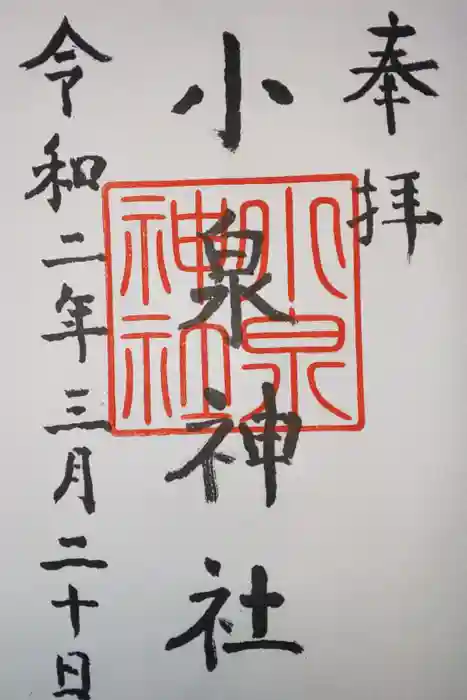 奉拝
小泉神社
小泉神社
令和二年三月二十日